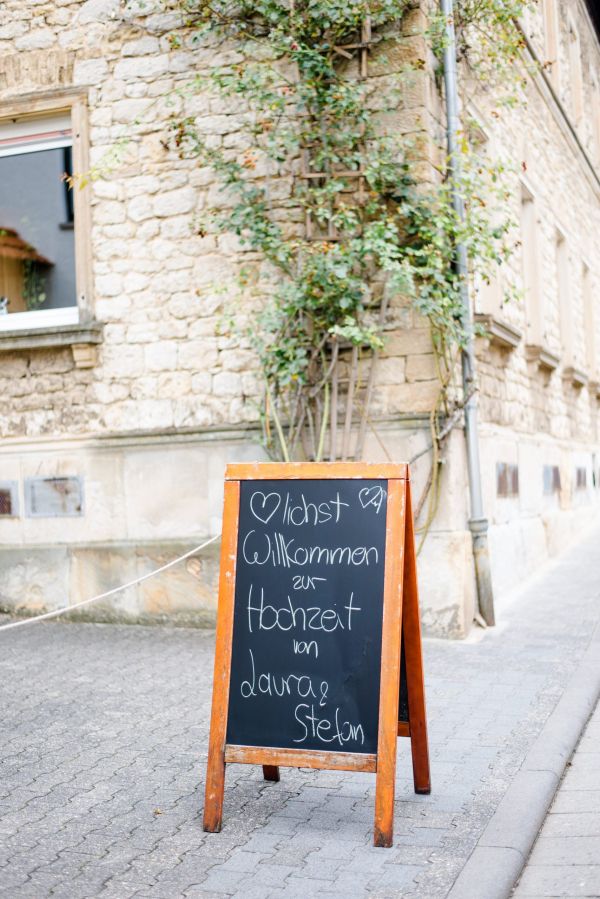 ♡lichst ♡
Willkommen
zur
Hochzeit
von
Laura &
Stefan